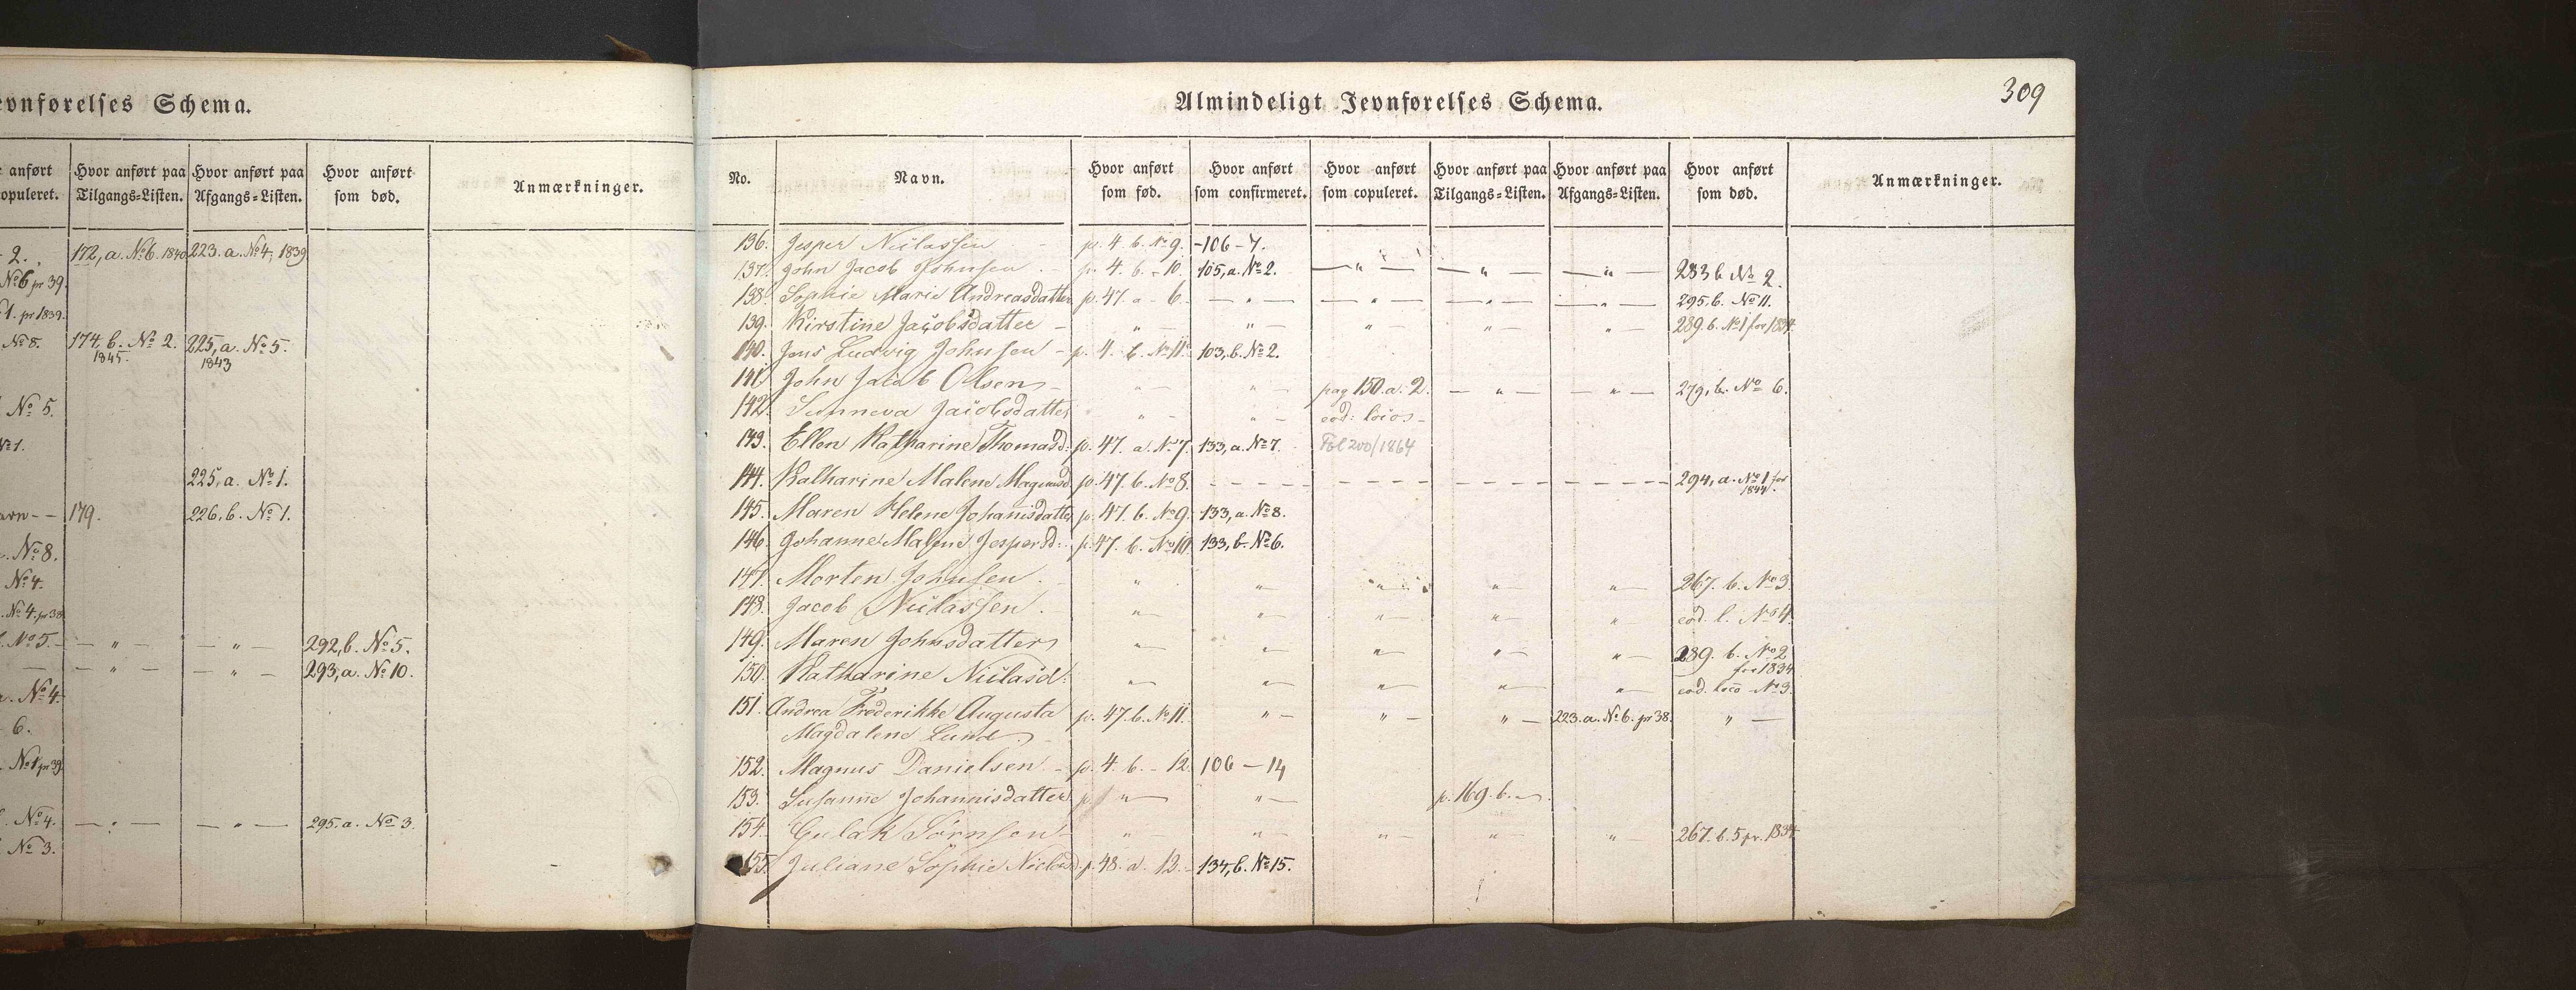 evnførelses Schema.
anført
opuleret.
Hvor anført paa
Tilgangs-Listen.
Hvor anført paa
Afgangs-Listen.
Hvor anført
som død.
Anmærkninger.
2. 172, a. No 6. 1840 223. a. No 4, 1839
No 6 pr 39.
1. pr 1839.
No 8. 174, b. No 2. 1845. 225, a. No 5. 1843
No 5.
No 1.
225, a. No 1.
179. 226, b. No 1.
No 8.
No 4.
No 4. pr 38
No 5. — " — — " — 292, b. No 5.
— — " — — " — 293, a. No 10.
No 4.
6.
No 1 pr 39
No 4. — " — — " — 295. a. No 3.
No 3.
Almindeligt Jevnførelses Schema.
309
No.
Navn.
Hvor anført
som fød.
Hvor anført
som confirmeret.
Hvor anført
som copuleret.
Hvor anført paa
Tilgangs-Listen.
Hvor anført paa
Afgangs-Listen.
Hvor anført
som død.
Anmærkninger.
136. Jesper Niclassen p. 4. b. No 9. -106-7.
137. John Jacob Johnsen. p. 4. b. - 10. 105, a. No 2. — " — — " — — " — 283 b No 2.
138. Sophie Marie Andreasdatter p. 47. a - 6. — " — — " — — " — — " — 295. b. No 11.
139. Kirstine Jacobsdatter — " — " — " — " — " — 289. b. No 1 for 1834.
140. Jens Ludvig Johnsen - p. 4. b. No 11. 103, b. No 2.
141. John Jacob Olsen — " — " — pag 150. a. 2. — " — — " — 279, b. No 6.
142. Sunneva Jacobsdatter " — " — eod: locos —
143. Ellen Katharine Thomasd: p. 47. a. No 7. 133, a. No 7. Fol 200/1864
144. Katharine Malene Magnusd. p. 47. b. No 8. - - - - - 294, a. No 1 for 1844.
145. Maren Helene Johannisdatter p. 47. b. No 9. 133, a. No 8.
146. Johanne Malene Jespersd: p. 47. b. No 10. 133, b. No 6.
147. Morten Johnsen. " " — " — " — " — 267. b. No 3
148. Jacob Niclassen. " — " — " — " — " — eod. l. No 4.
149. Maren Johnsdatter " — " — " — " — " — 289. b. No 2 for 1834
150. Katharine Niclasd: " — " — " — " — " — eod. loco No 3.
151. Andrea Frederikke Augusta p. 47. b. No 11. " — " — " — 223. a. No 6. pr 38. " —
Magdalene Lund.
152. Magnus Danielsen - p. 4. b. - 12. 106 - 14
153. Susanne Johannisdatter p. " — " — p. 169. b.
154. Gulak Sörnsen — " — " — " — " — " — 267. b. 5 pr. 1834
155. Juliane Sophie Niclasd. p. 48. a 12. 134, b. No 15.